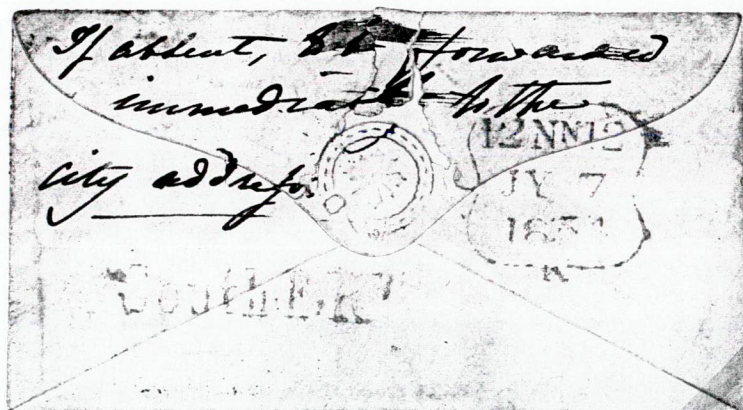 If absent, to be forwarded
immediately to the
city addreſs.
12 NN 12
JY 7
185
K
South E.K